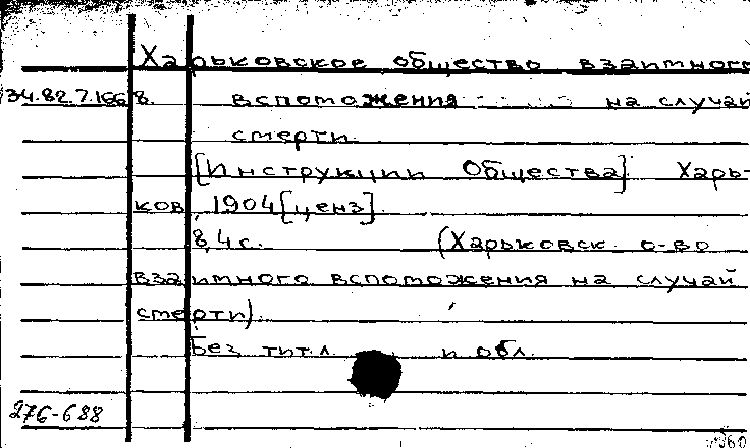 Харьковское общество взаимного
34.82.7.166 8. вспоможения на случай
смерти.
[Инструкции Общества]. Харь-
ков, 1904 [ценз].
8, 4 с. (Харьковск. о-во
взаимного вспоможения на случай
смерти).
Без тит. л. и обл.
276-688